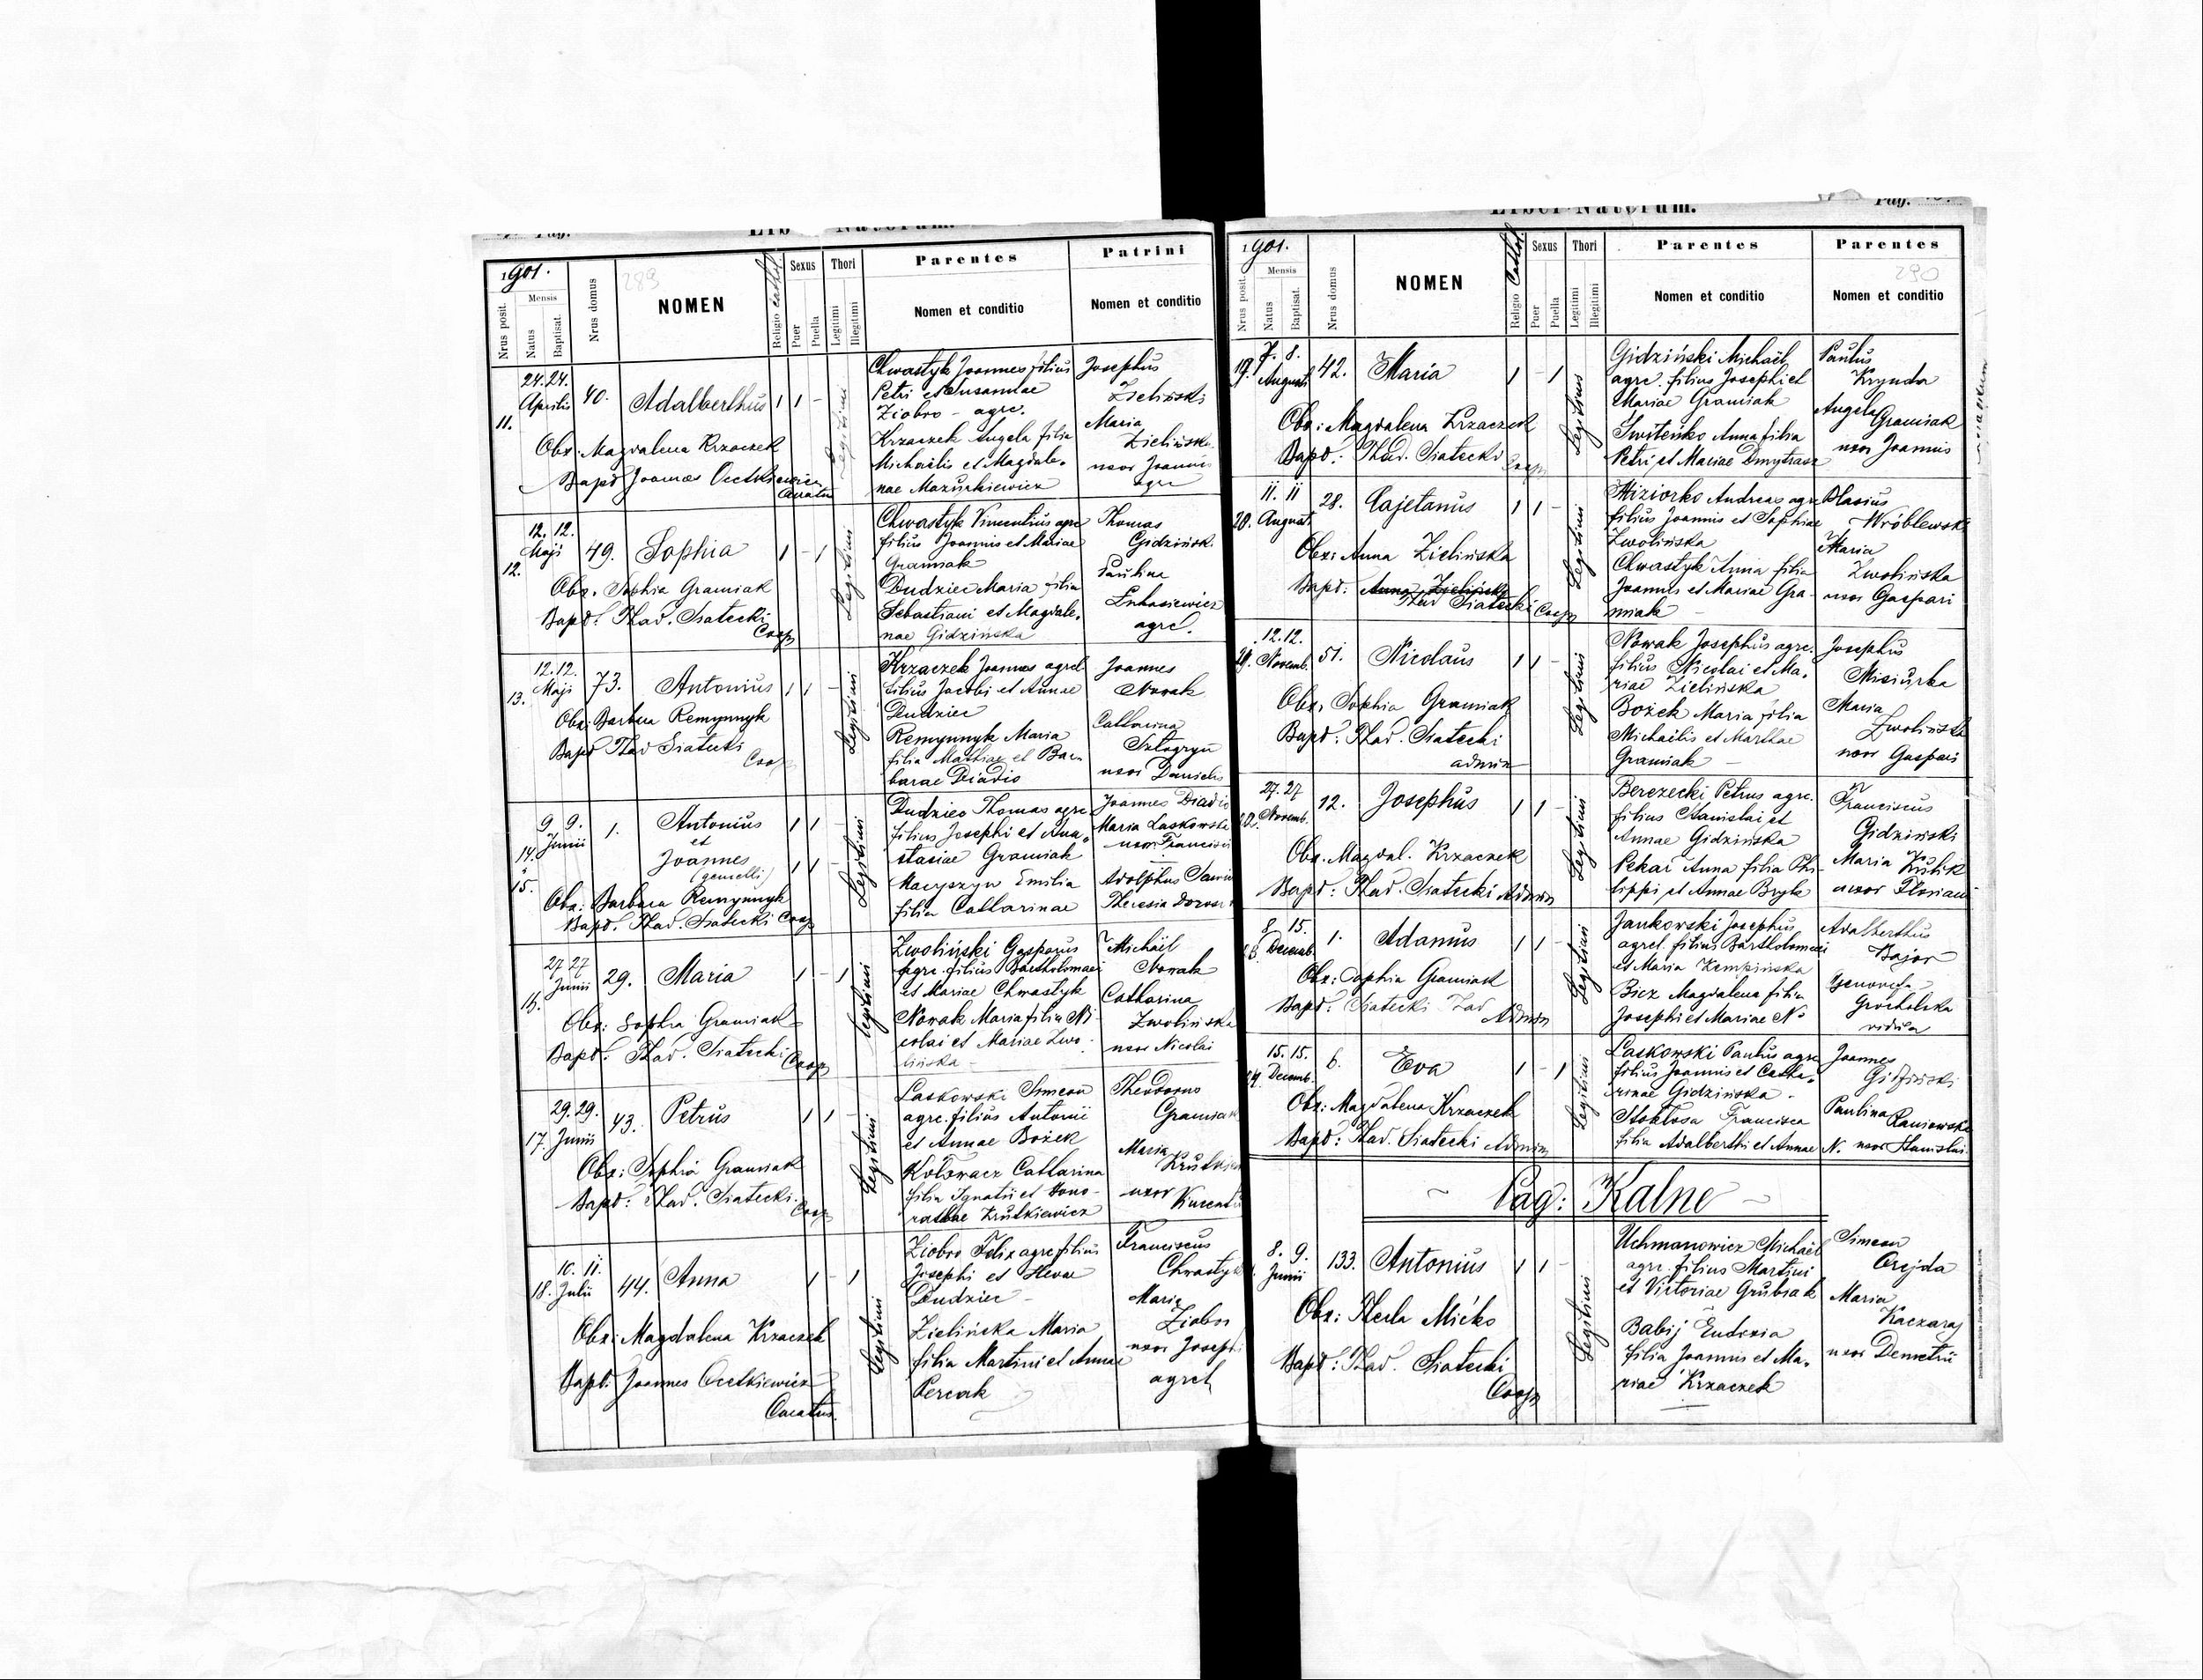 Liber Natorum.
1901.
289
Nrus posit.
Mensis
Natus
Baptisat.
Nrus domus
NOMEN
Religio cathol.
Sexus
Puer
Puella
Thori
Legitimi
Illegitimi
Parentes
Nomen et conditio
Patrini
Nomen et conditio
11.
24. 24.
Aprilis
40.
Adalberthus
1 1 -
Legitimi
Obx: Magdalena Krzaczek
Bapt Joannes Ocetkiewicz
Curatus
Chwastyk Joannes filius
Petri et Susannae
Ziobro - agre.
Krzaczek Angela filia
Michaëlis et Magdale-
nae Mazurkiewicz
Josephus
Zieliński
Maria
Zielińska
uxor Joannis
agre
12.
12. 12.
Maji
49.
Sophia
1 - 1
Legitimi
Obx. Sophia Gramiak
Bapt. Thad. Siatecki
Coop
Chwastyk Vincentius agre
filius Joannis et Mariae
Gramiak
Dudziec Maria filia
Sebastiani et Magdale-
nae Gidzińska
Thomas
Gidzińsk.
Paulina
Lukasiewicz
agre.
13.
12. 12.
Maji
73.
Antonius
1 1 -
Legitimi
Obx: Barbara Remynnyk
Bapt Thad Siatecki
Coop
Krzaczek Joannes agrel
filius Jacobi et Annae
Dudziec
Remynnyk Maria
filia Mathiae et Bar-
barae Diadio
Joannes
Nowak
Catharina
Sztogryn
uxor Danielis
14.
15.
9 9.
Junii
1.
Antonius
et
Joannes
(gemelli)
1 1
1 1
Legitimi
Obx: Barbara Remynnyk
Bapt. Thad. Siatecki Coop
Dudziec Thomas agre
filius Josephi et Ana-
stasiae Gramiak
Macyszyn Emilia
filia Catharinae
Joannes Diadio
Maria Laskowska
uxor Francisci
Adolphus
Theresia
16.
27 27
Junii
29.
Maria
1 - 1
Legitimi
Obx: Sophia Gramiak
Bapt. Thad. Siatecki
Coop
Zwoliński Gasparus
agre. filius Bartholomaei
et Mariae Chwastyk
Nowak Maria filia Ni-
colai et Mariae Zwo-
lińska -
Michaël
Nowak
Catharina
Zwolińska
uxor Nicolai
17.
29. 29.
Junii
43.
Petrus
1 1 -
Legitimi
Obx: Sophia Gramiak
Bapt: Thad. Siatecki.
Coop
Laskowski Simeon
agre. filius Antonii
et Annae Bożek
Kołowacz Catharina
filia Ignatii et Hono-
rathae Krutkiewicz
Theodorus
Gramiak
Maria
uxor
18.
10. 11.
Julii
44.
Anna
1 - 1
Legitimi
Obx: Magdalena Krzaczek
Bapt. Joannes Ocetkiewicz
Curatus.
Ziobro Felix agre filius
Josephi et Hevae
Dudziec -
Zielińska Maria
filia Martini et Annae
Percak
Franciscus
Chwastyk
Maria
Ziobro
uxor Josephi
agrel
Liber Natorum.
Pag.
1901.
290
Nrus posit.
Mensis
Natus
Baptisat.
Nrus domus
NOMEN
Religio Cathol.
Sexus
Puer
Puella
Thori
Legitimi
Illegitimi
Parentes
Nomen et conditio
Parentes
Nomen et conditio
19.
7. 8.
Augusti
42.
Maria
1 - 1
Legitimi
Obx: Magdalena Krzaczek
Bapt: Thad. Siatecki
Coop
Gidziński Michaël
agre. filius Josephi et
Mariae Gramiak
Świteńko Anna filia
Petri et Mariae Dmytrasz
Paulus
Krynda
Angela Gramiak
uxor Joannis
20.
11. 11
August
28.
Cajetanus
1 1 -
Legitimi
Obx: Anna Zielińska
Bapt: Anna Zielińska
Thad Siatecki Coop
Miziorko Andreas agre
filius Joannis et Sophiae
Zwolińska
Chwastyk Anna filia
Joannis et Mariae Gra-
miak -
Blasius
Wróblewski
Maria
Zwolińska
uxor Gaspari
21.
12. 12.
Novemb.
51.
Nicolaus
1 1 -
Legitimi
Obx. Sophia Gramiak
Bapt: Thad. Siatecki
admin
Nowak Josephus agre.
filius Nicolai et Ma-
riae Zielińska
Bożek Maria filia
Michaëlis et Marthae
Gramiak -
Josephus
Misiurka
Maria
Zwolińska
uxor Gaspari
27. 27
Novemb.
12.
Josephus
1 1 -
Legitimi
Obx. Magdal. Krzaczek
Bapt: Thad. Siatecki Admin
Berezecki Petrus agre.
filius Stanislai et
Annae Gidzińska
Pekar Anna filia Phi-
lippi et Annae Bryk
Franciscus
Gidziński
Maria Kubik
uxor Floriani
8 15.
Decemb.
1.
Adamus
1 1 -
Legitimi
Obx: Sophia Gramiak
Bapt: Siatecki Tad
Admin
Jankowski Josephus
agrel. filius Bartholomaei
et Maria Kempińska
Biez Magdalena filia
Josephi et Mariae N.
Adalberthus
Bajor
Genovefa
Grocholska
vidua
24.
15. 15.
Decemb.
6.
Eva
1 - 1
Legitimi
Obx: Magdalena Krzaczek
Bapt: Thad. Siatecki Admin
Laskowski Paulus agre
filius Joannis et Catha-
rinae Gidzińska -
Stokłosa Francisca
filia Adalberthi et Annae N.
Joannes
Gidziński
Paulina
Raniowska
uxor Stanislai.
~ Pag: Kalne ~
8. 9.
Junii
133.
Antonius
1 1 -
Legitimi
Obx: Thecla Mićko
Bapt: Thad. Siatecki
Coop
Uchmanowicz Michaël
agre. filius Martini
et Victoriae Grubiak
Babij Eudoxia
filia Joannis et Ma-
riae Krzaczek
Simeon
Orejda
Maria
Kaczaraj
uxor Demetrii